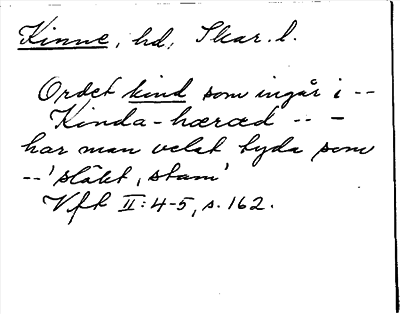 Kinne, hd, Skar. l.
Ordet kind som ingår i --
Kinda-hæræd -- -
har man velat tyda som
-- 'släkt, stam'
Vft II: 4-5, s. 162.